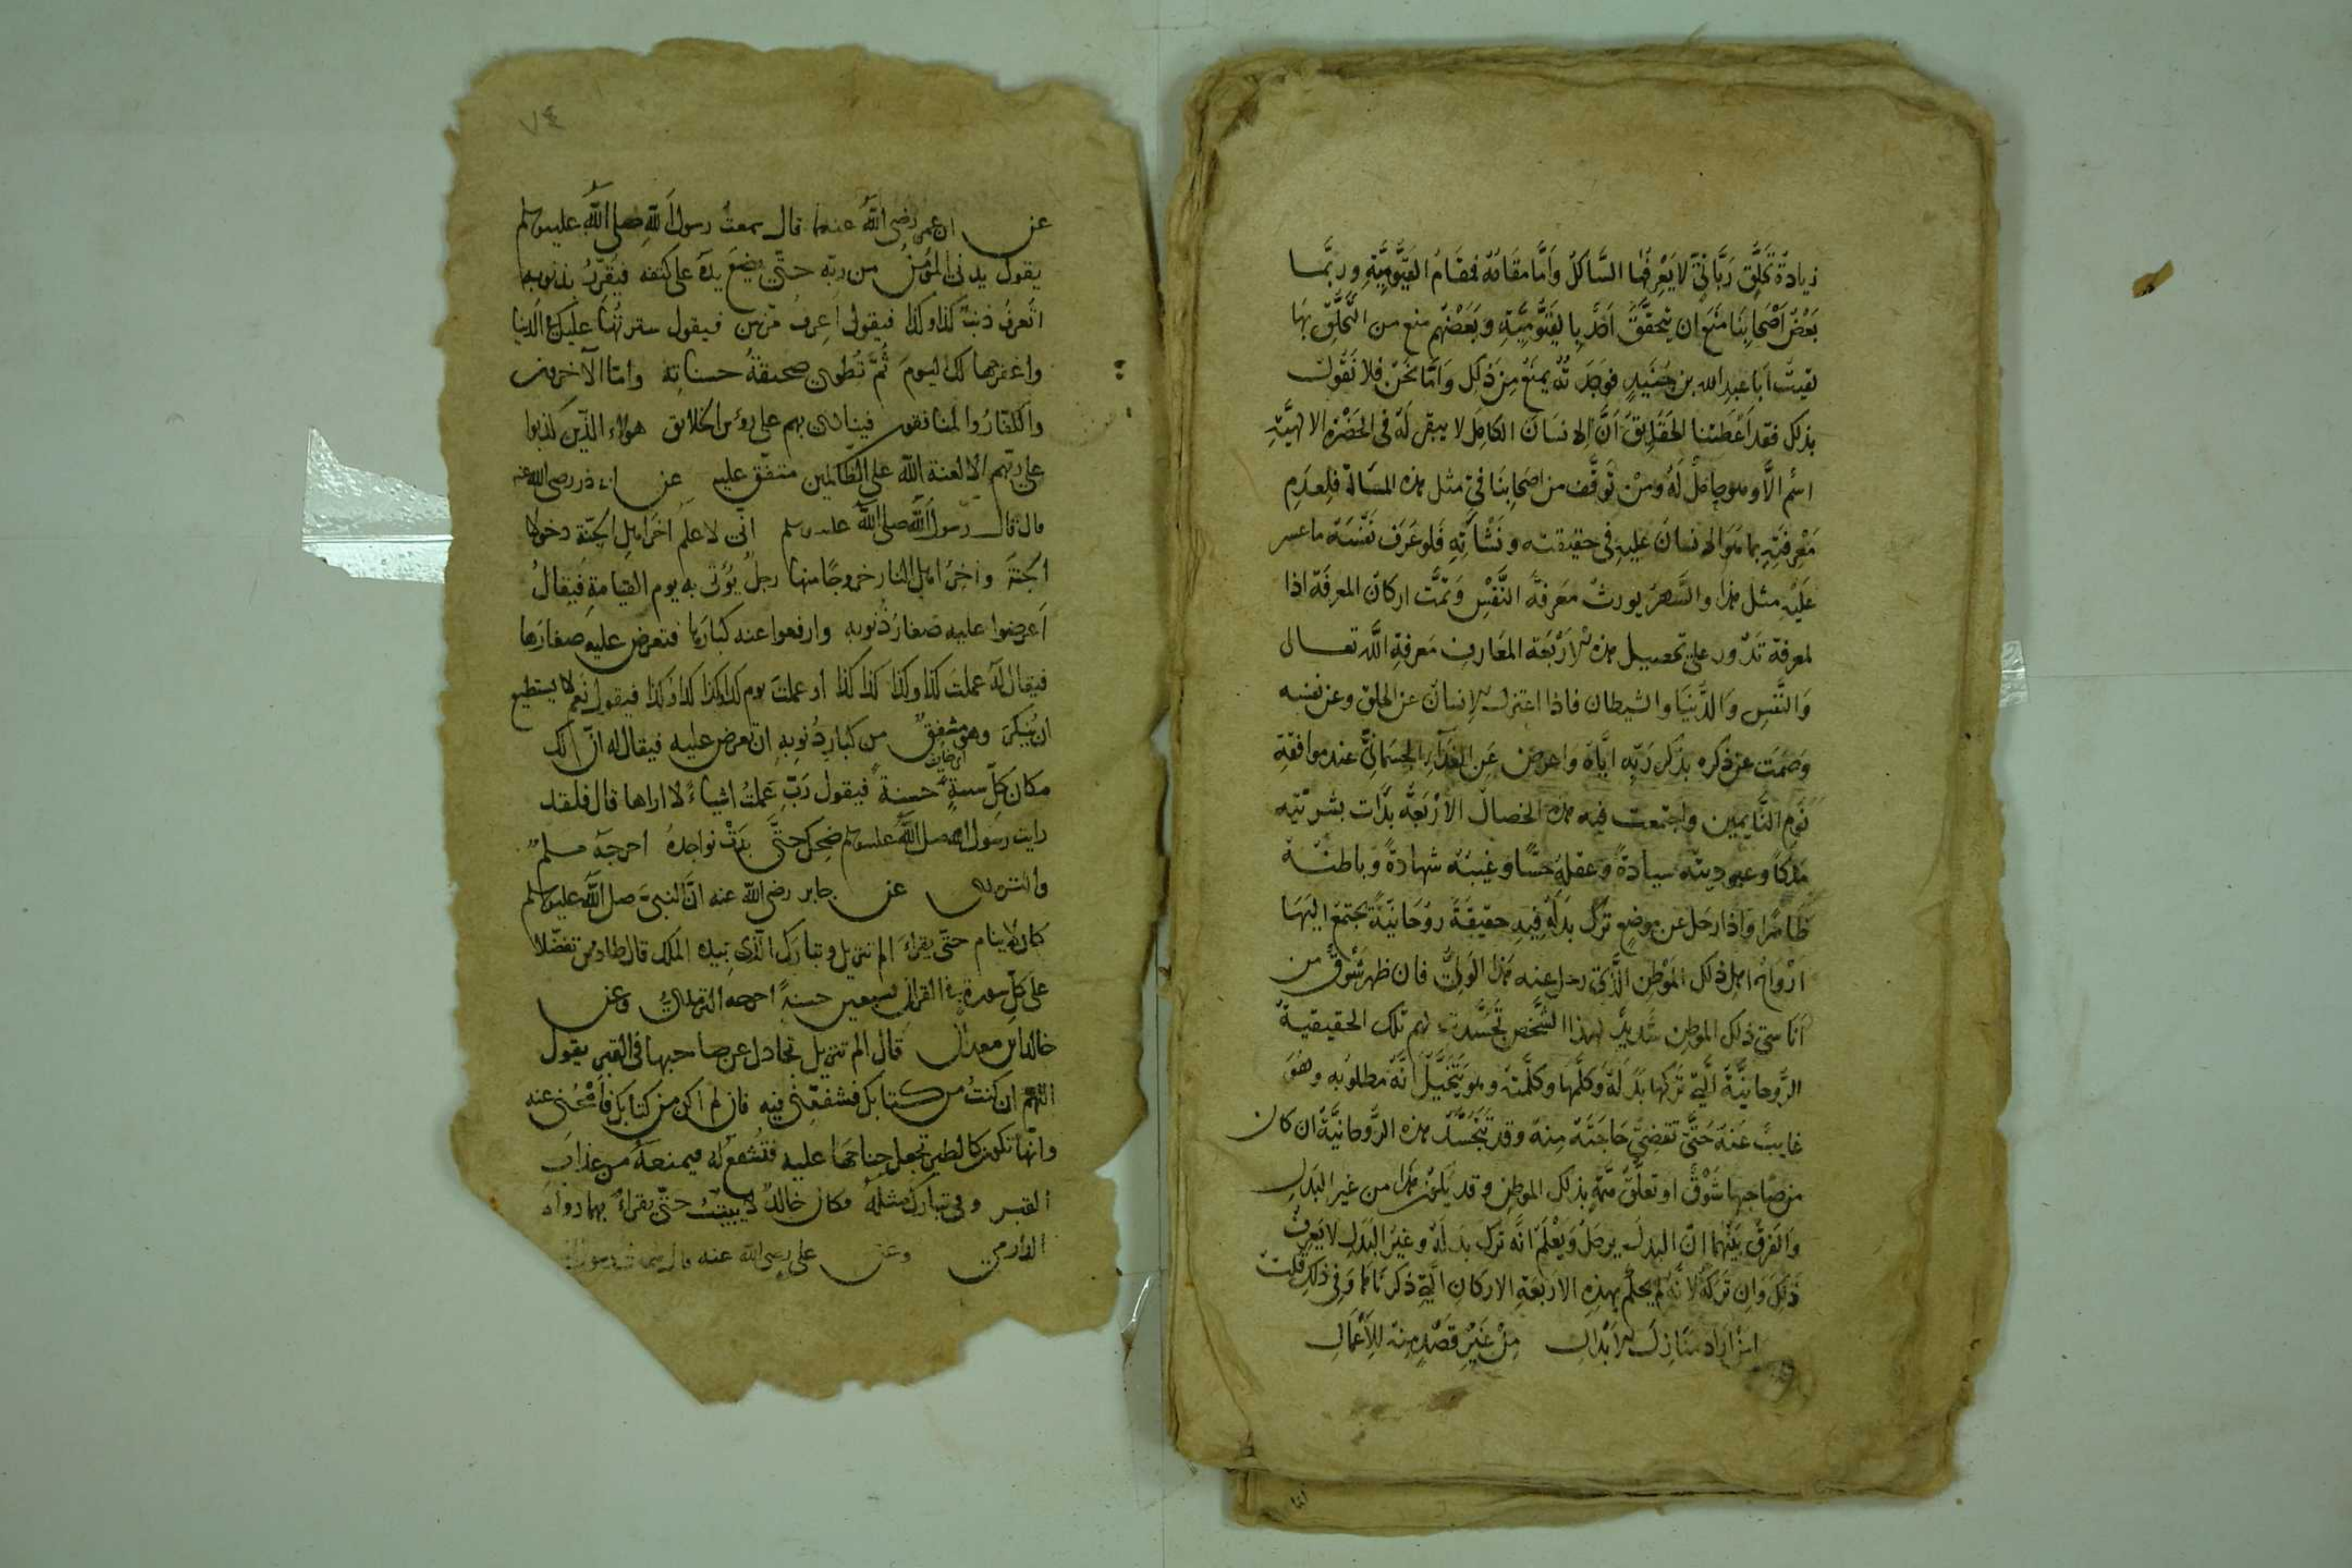 زيادة تخلق رباني لا يعرفها السالك واما مقامه فمقام القيومية وربما
بعض اصحابنا منع ان يتحقق احد بالقيومية وبعضهم منع من التخلق بها
لقيت ابا عبد الله بن جنيد فوجدته يمنع من ذلك واما نحن فلا نقول
بذلك فقد اعطتنا الحقايق ان الانسان الكامل لا يبقى له في الحضرة الالهية
اسم الا وهو حامل له ومن توقف من اصحابنا في مثل هذه المسالة فلعدم
معرفته بما هو الانسان عليه في حقيقته ونشاته فلو عرف نفسه ما عسر
عليه مثل هذا والسهر يورث معرفة النفس وتمت اركان المعرفة اذا
لمعرفة تدور على تحصيل هذه الاربعة المعارف معرفة الله تعالى
والنفس والدنيا والشيطان فاذا اعتزل الانسان عن الخلق وعن نفسه
وصمت عن ذكره بذكر ربه اياه واعرض عن الغذاء الجسماني عند موافقة
نوم النايمين واجتمعت فيه هذه الخصال الاربعة بدلت بشريته
ملكا وعبوديته سيادة وعقله حسا وغيبته شهادة وباطنه
ظاهرا واذا رحل عن موضع ترك بدله فيه حقيقة روحانية يجتمع اليها
ارواح اهل ذلك الموطن الذي رحل عنه هذا الولي فان ظهر شوق من
اناسي ذلك الموطن شديد لهذا الشخص تجسدت لهم تلك الحقيقية
الروحانية التي تركها بدله وكلمها وكلمته وهو يتخيل انه مطلوبه وهو
غايب عنه حتى تقضي حاجته منه وقد تتجسد هذه الروحانية ان كان
من صاحبها شوق او تعلق همه بذلك الموطن وقد يكون هذا من غير البدل
والفرق بينهما ان البدل يرحل ويعلم انه ترك بدله وغير البدل لا يعرف
ذلك وان تركه لانه لم يحكم هذه الاربعة الاركان التي ذكرناها وفي ذلك قلت
من اراد منازل الابدال من غير قصد منه للاعمال
لنا
٧٤
عن ابن عمر رضي الله عنهما قال سمعت رسول الله صلى الله عليه وسلم
يقول يدنى المؤمن من ربه حتى يضع يده على كنفه فيقرره بذنوبه
اتعرف ذنب كذا وكذا فيقول اعرف مرتين فيقول سترتها عليك في الدنيا
واغفرها لك اليوم ثم تطوى صحيفة حسناته واما الآخرون
والكفار والمنافقون فينادى بهم على رؤس الخلائق هولاء الذين كذبوا
على ربهم الا لعنة الله على الظالمين متفق عليه عن ابى ذر رضى الله عنه
قال قال رسول الله صلى الله عليه وسلم انى لاعلم آخر اهل الجنة دخولا
الجنة وآخر اهل النار خروجا منها رجل يؤتى به يوم القيامة فيقال
اعرضوا عليه صغار ذنوبه وارفعوا عنه كبارها فتعرض عليه صغارها
فيقال له عملت كذا وكذا كذا كذا او عملت يوم كذا وكذا كذا وكذا فيقول نعم لا يستطيع
ان ينكر وهو مشفق من كبار ذنوبه ان تعرض عليه فيقال له ان لك
مكان كل سيئة حسنة فيقول رب عملت اشياء لا اراها قال فلقد
رايت رسول الله صلى الله عليه وسلم ضحك حتى بدت نواجذه اخرجه مسلم
والترمذى عن جابر رضى الله عنه ان النبى صلى الله عليه وسلم
كان لا ينام حتى يقراء الم تنزيل وتبارك الذى بيده الملك قال طاوس تفضلان
على كل سورة فى القرآن بسبعين حسنة اخرجه الترمذى وعن
خالد ابن معدان قال الم تنزيل تجادل عن صاحبها فى القبر يقول
اللهم ان كنت من كتابك فشفعنى فيه فان لم اكن من كتابك فامحنى عنه
وانها تكون كالطير تجعل جناحها عليه فتشفع له فيمنعه من عذاب
القبر وفى تبارك مثله وكان خالد لا يبيت حتى يقراء بهما رواه
الدارمى وعن على رضى الله عنه قال